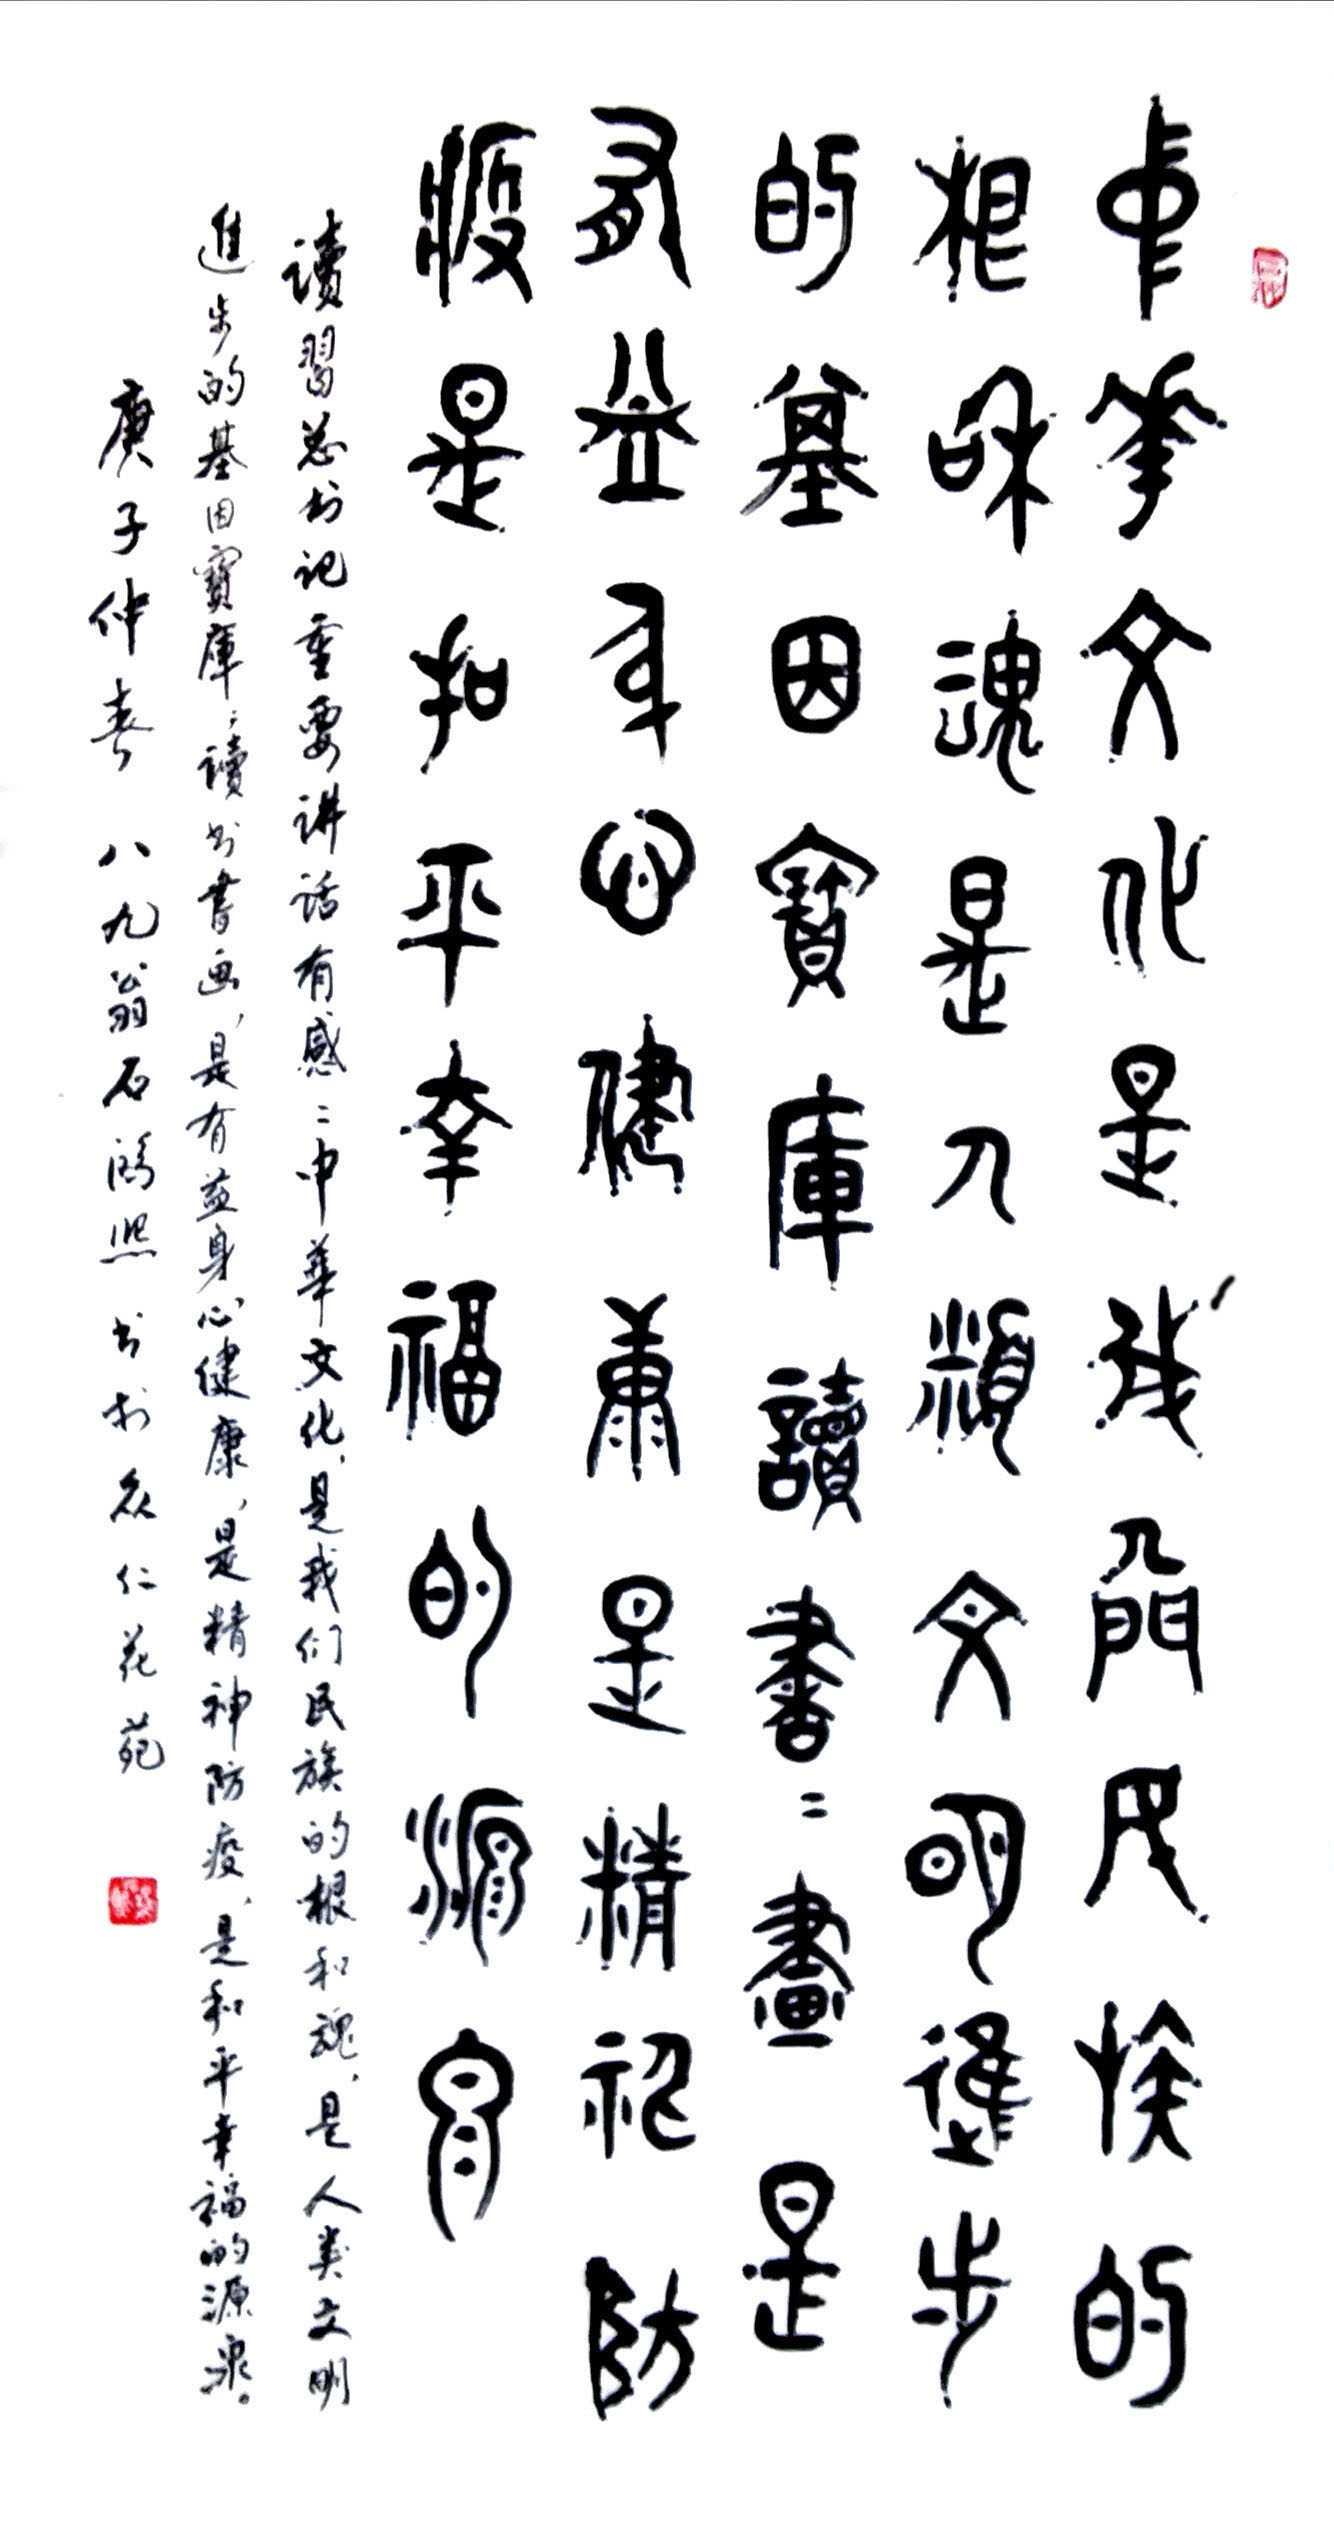 中華文化是我們民族的
根和魂是人類文明進步
的基因寶庫讀書書畫是
有益身心健康是精神防
疫是和平幸福的源泉
讀習总书记重要讲话有感：中華文化，是我们民族的根和魂，是人类文明
進步的基因寶庫；讀书書画，是有益身心健康，是精神防疫，是和平幸福的源泉。
庚子仲春 八九翁石鸿熙书于众仁花苑